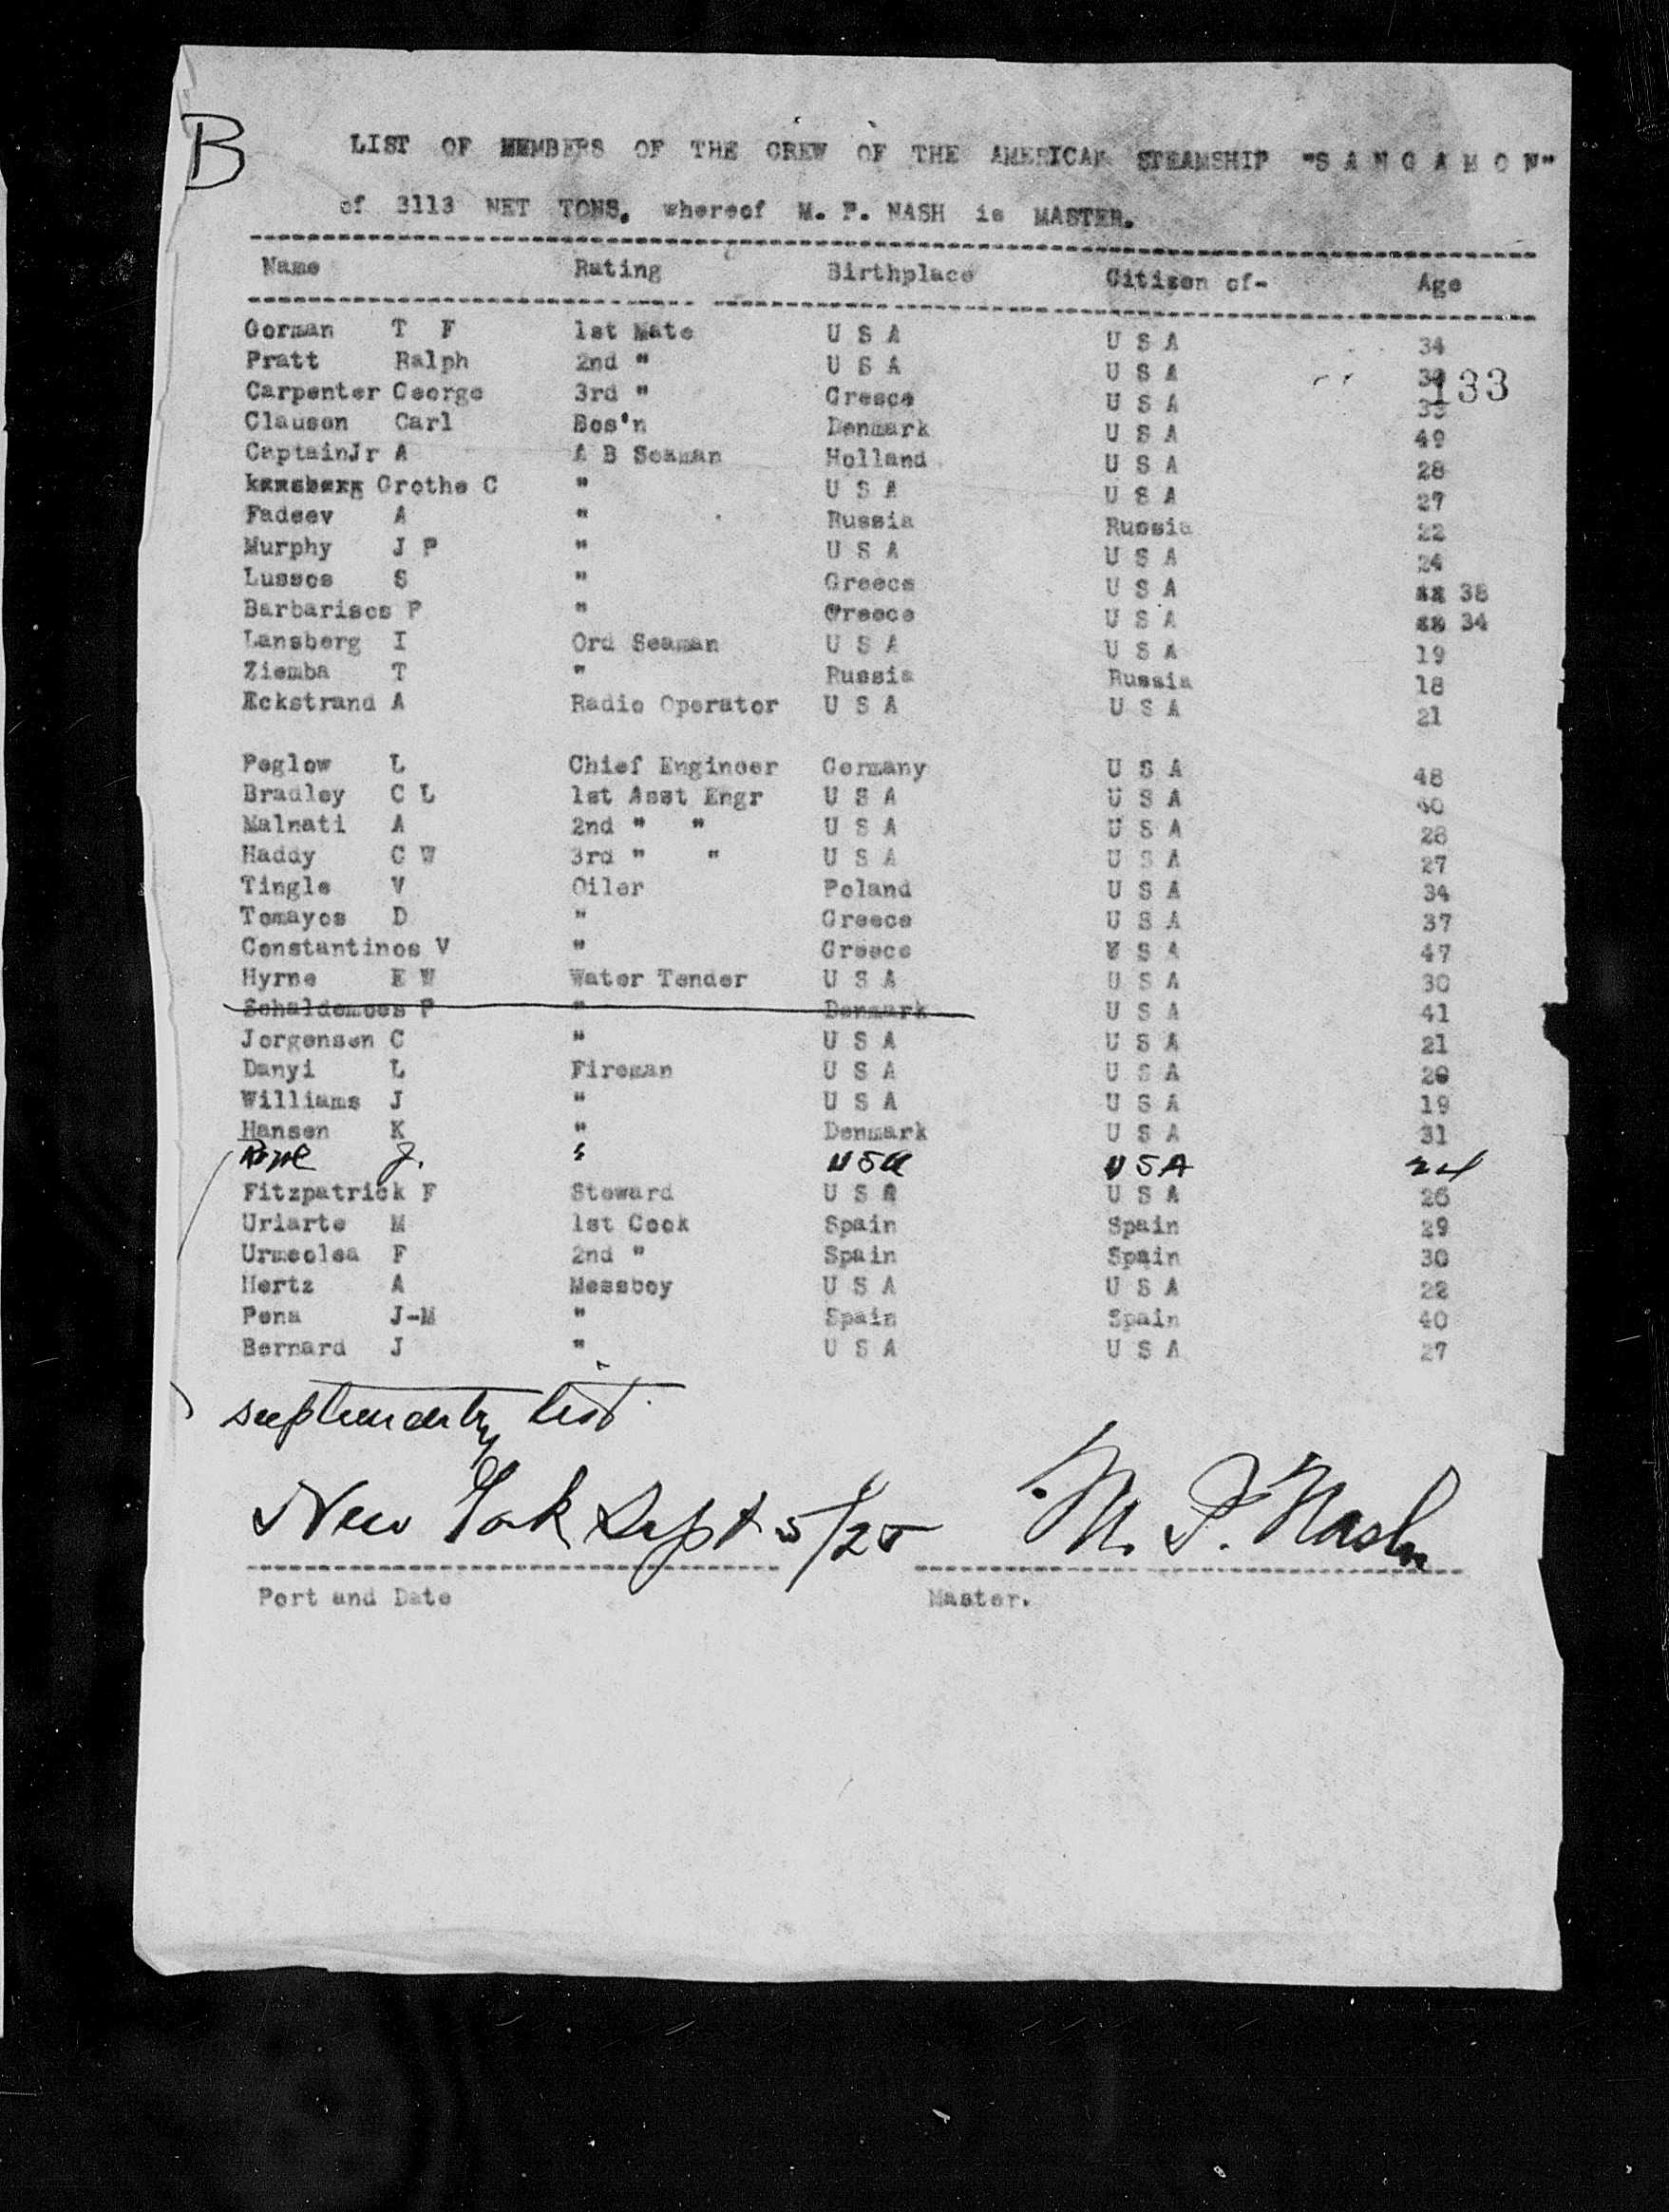 B
LIST OF MEMBERS OF THE CREW OF THE AMERICAN STEAMSHIP "S A N G A M O N"
of 3113 NET TONS, whereof M. P. NASH is MASTER.
Name Rating Birthplace Citizen of- Age
Gorman T F 1st Mate U S A U S A 34
Pratt Ralph 2nd " U S A U S A
133
Carpenter George 3rd " Greece U S A 33
Clausen Carl Bos'n Denmark U S A 49
CaptainJr A A B Seaman Holland U S A 28
Grothe C " U S A U S A 27
Fadeev A " Russia Russia 22
Murphy J P " U S A U S A 24
Lussos S " Greece U S A 38
Barbarisos P " Greece U S A 34
Lansberg I Ord Seaman U S A U S A 19
Ziemba T " Russia Russia 18
Eckstrand A Radio Operator U S A U S A 21
Peglow L Chief Engineer Germany U S A 48
Bradley C L 1st Asst Engr U S A U S A 40
Malnati A 2nd " " U S A U S A 28
Haddy C W 3rd " " U S A U S A 27
Tingle V Oiler Poland U S A 34
Tomayos D " Greece U S A 37
Constantinos V " Greece U S A 47
Hyrne E W Water Tender U S A U S A 30
Schaldemoes P " Denmark U S A 41
Jorgensen C " U S A U S A 21
Danyi L Fireman U S A U S A 20
Williams J " U S A U S A 19
Hansen K " Denmark U S A 31
J. " U S A U S A 24
Fitzpatrick F Steward U S A U S A 26
Uriarte M 1st Cook Spain Spain 29
Urmeolea F 2nd " Spain Spain 30
Hertz A Messboy U S A U S A 22
Pena J-M " Spain Spain 40
Bernard J " U S A U S A 27
list
New York Sept 5/25 M. P. Nash
Port and Date Master.